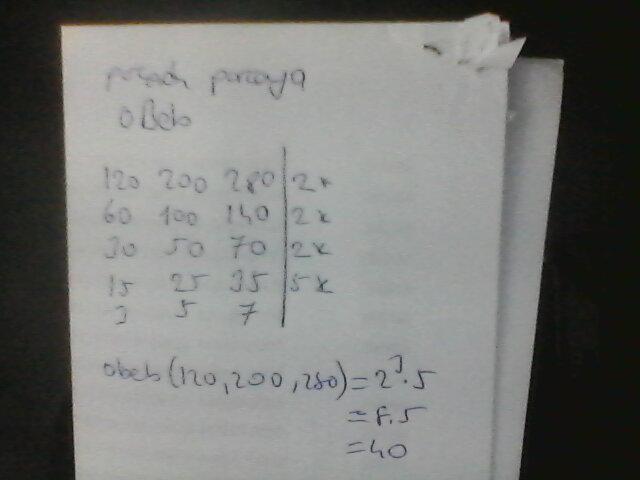 parçadan parçaya
OBEB
120 200 280 | 2*
60 100 140 | 2*
30 50 70 | 2*
15 25 35 | 5*
3 5 7
obeb(120,200,280)=2³.5
=8.5
=40